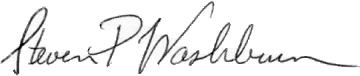 Steven P Washburn